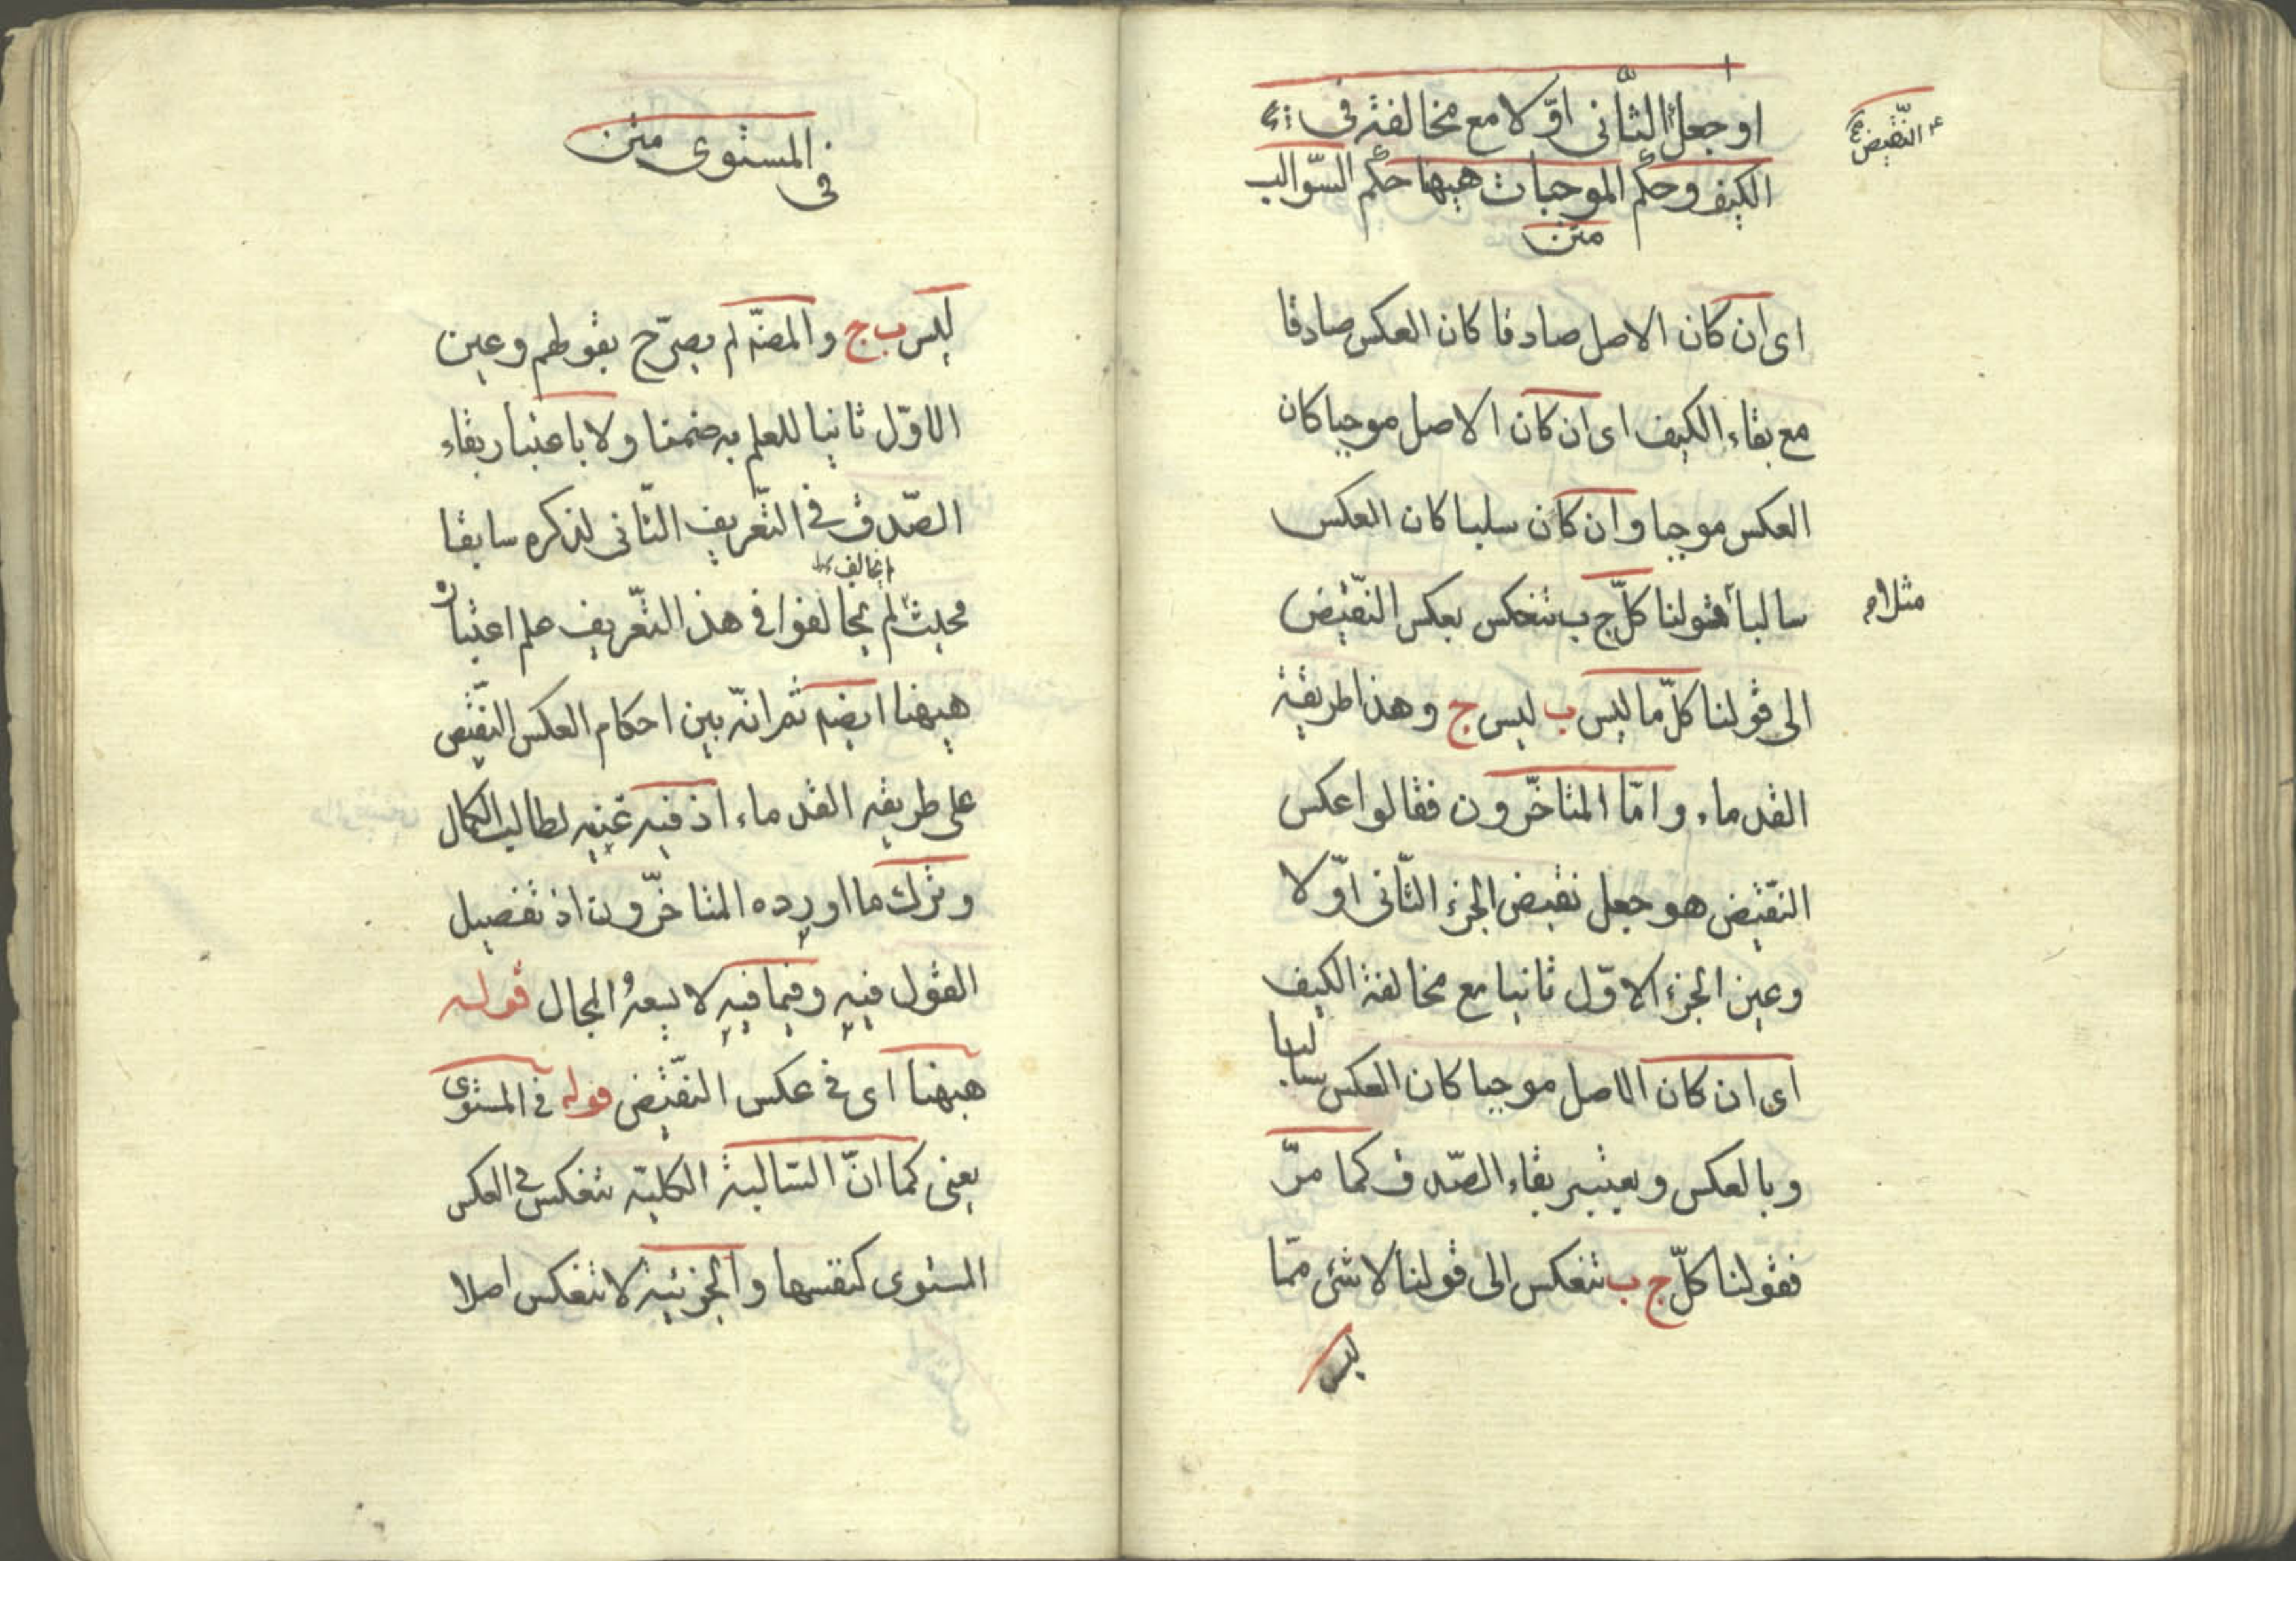 او جعل الثّانى اوّلا مع مخالفة فى
النّقيض
الكيف وحكم الموجبات هيهنا حكم السّوالب
متن
اى ان كان الاصل صادقا كان العكس صادقا
مع بقاء الكيف اى ان كان الاصل موجبا كان
العكس موجبا وان كان سلبا كان العكس
سالبا فقولنا كلّ ج ب تنعكس بعكس النّقيض
مثلا
الى قولنا كلّ ما ليس ب ليس ج وهذا طريقة
القدماء وامّا المتاخّرون فقالوا عكس
النّقيض هو جعل نقيض الجزء الثّانى اوّلا
وعين الجزء الاوّل ثانيا مع مخالفة الكيف
اى ان كان الاصل موجبا كان العكس سالبا
وبالعكس ويعتبر بقاء الصّدق كما مرّ
فقولنا كلّ ج ب تنعكس الى قولنا لا شئ ممّا
ليس
فى المستوى متن
ليس ب ج والمصّه لم يصرّح بقولهم وعين
الاوّل ثانيا للعلم به ضمنا ولا باعتبار بقاء
الصّدق فى التّعريف الثّانى لذكره سابقا
يخالف
فحيث لم يخالفوا فى هذا التّعريف علم اعتباره
هيهنا ايضه ثمّ انّه بين احكام العكس النّقيض
على طريقه القدماء اذ فيه غنيه لطالب الكمال
وترك ما اورده المتاخّرون اذ تفصيل
القول فيه وفيما فيه لا يسعه المجال قوله
هيهنا اى فى عكس النّقيض قوله فى المستوى
يعنى كما انّ السّالبة الكليّه تنعكس فى العكس
المستوى كنفسها والجزئيّه لا تنعكس اصلا